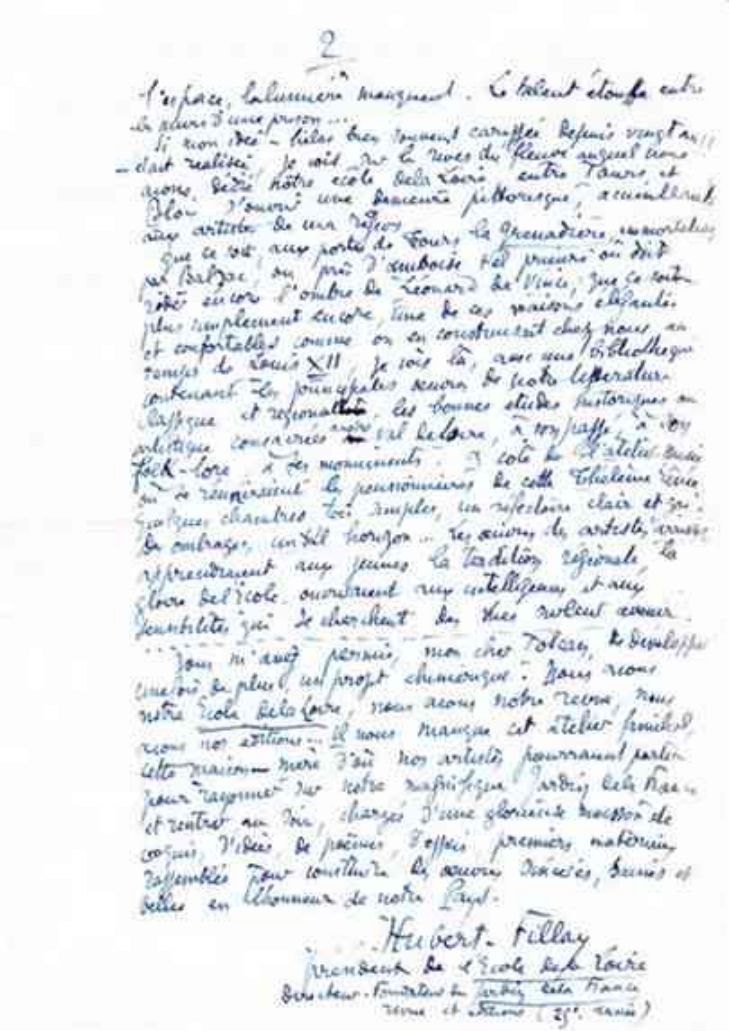 2
l'espace, la lumière manquent. Le talent étouffe entre
les murs d'une prison...
Si mon idée - hélas bien souvent caressée depuis vingt ans !!
- était réalisée, je vois sur les rives du fleuve auquel nous
avons dédié notre école de la Loire, entre Tours et
Blois s'ouvrir une demeure pittoresque, accueillante
aux artistes de ma région
que ce soit, aux portes de Tours la Grenadière, immortalisée
par Balzac, ou près d'Amboise tel prieuré où doit
rôder encore l'ombre de Léonard de Vinci, que ce soit
plus simplement encore, une de ces maisons élégantes
et confortables comme on en construisait chez nous, au
temps de Louis XII, je vois là, avec une bibliothèque
contenant les principales œuvres de notre littérature
classique et régionaliste, les bonnes études historiques ou
artistique consacrées au val de Loire, à son passé, à son
folk-lore, à ses monuments. à côté de l'atelier
où se réuniraient les pensionnaires de cette Thélème
quelques chambres très simples, un réfectoire clair et gai
des ombrages, un bel horizon... Les œuvres des artistes
apprendraient aux jeunes la tradition régionale la
gloire de l'école, ouvriraient aux intelligences et aux
sensibilités qui se cherchent des vues
Vous m'avez permis, mon cher de développer
une fois de plus, un projet chimérique. Nous avons
notre École de la Loire, nous avons notre revue, nous
avons nos éditions... Il nous manque cet atelier familial,
cette maison mère d'où nos artistes pourraient partir
pour rayonner sur notre magnifique Jardin de la France
et rentrer au soir, chargés d'une glorieuse moisson de
croquis, d'idées, de poèmes, d'essais premiers matériaux
rassemblés pour construire des œuvres sincères, saines et
belles en l'honneur de notre Pays.
Hubert-Fillay
président de l'École de la Loire
Directeur-Fondateur du Jardin de la France
revue et éditions (25e année)